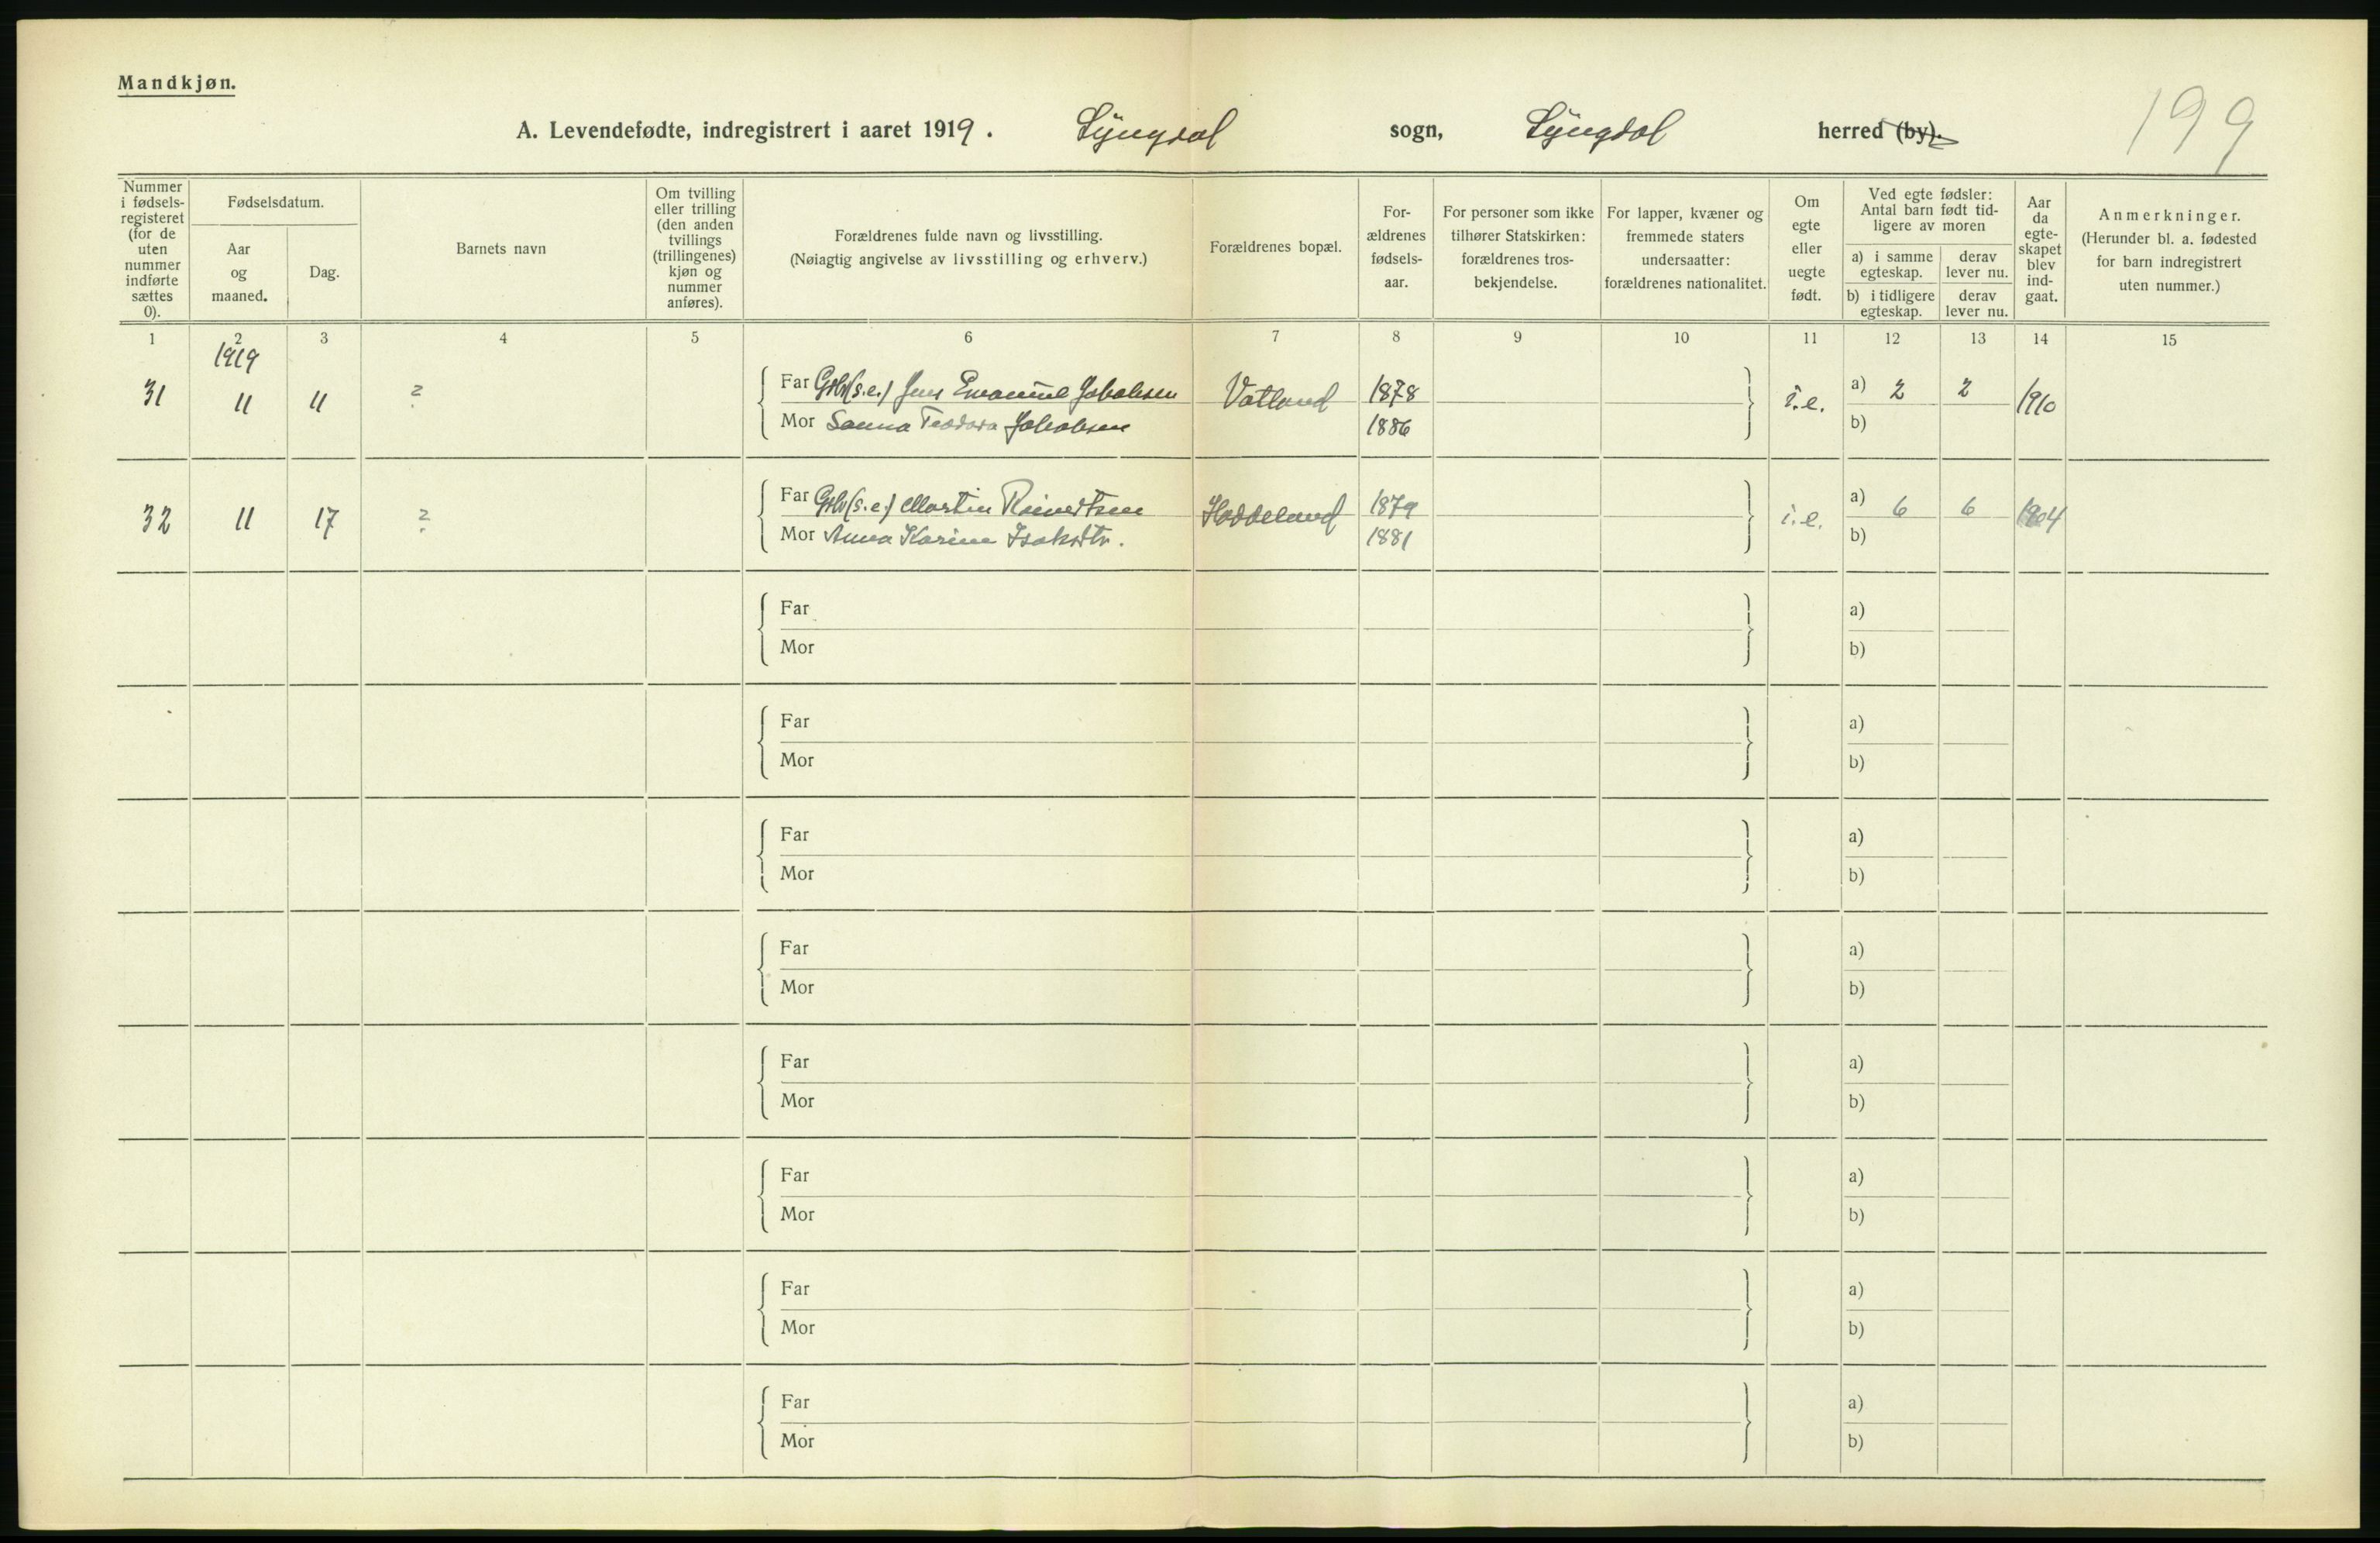 Mandkjøn.
A. Levendefødte, indregistrert i aaret 1919. Lyngdal sogn, Lyngdal herred (by).
199
Nummer i fødsels-registeret (for de uten nummer indførte sættes 0).
Fødselsdatum.
Aar og maaned.
Dag.
Barnets navn
Om tvilling eller trilling (den anden tvillings (trillingenes) kjøn og nummer anføres).
Forældrenes fulde navn og livsstilling.
(Nøiagtig angivelse av livsstilling og erhverv.)
Forældrenes bopæl.
For-ældrenes fødsels-aar.
For personer som ikke tilhører Statskirken: forældrenes tros-bekjendelse.
For lapper, kvæner og fremmede staters undersaatter: forældrenes nationalitet.
Om egte eller uegte født.
Ved egte fødsler: Antal barn født tid-ligere av moren
a) i samme egteskap.
derav lever nu.
b) i tidligere egteskap.
derav lever nu.
Aar da egte-skapet blev ind-gaat.
Anmerkninger.
(Herunder bl. a. fødested for barn indregistrert uten nummer.)
1 2 3 4 5 6 7 8 9 10 11 12 13 14 15
1919
31 11 11 ? Far Grbr (s.e.) Jens Emanuel Jakobsen Vatland 1878 i.e. a) 2 2 1910
Mor Sanna Teodora Jakobsen 1886 b)
32 11 17 ? Far Grbr (s.e.) Martin Reinertsen Haddeland 1879 i.e. a) 6 6 1904
Mor Anna Karine Isaksdtr. 1881 b)
Far a)
Mor b)
Far a)
Mor b)
Far a)
Mor b)
Far a)
Mor b)
Far a)
Mor b)
Far a)
Mor b)
Far a)
Mor b)
Far a)
Mor b)